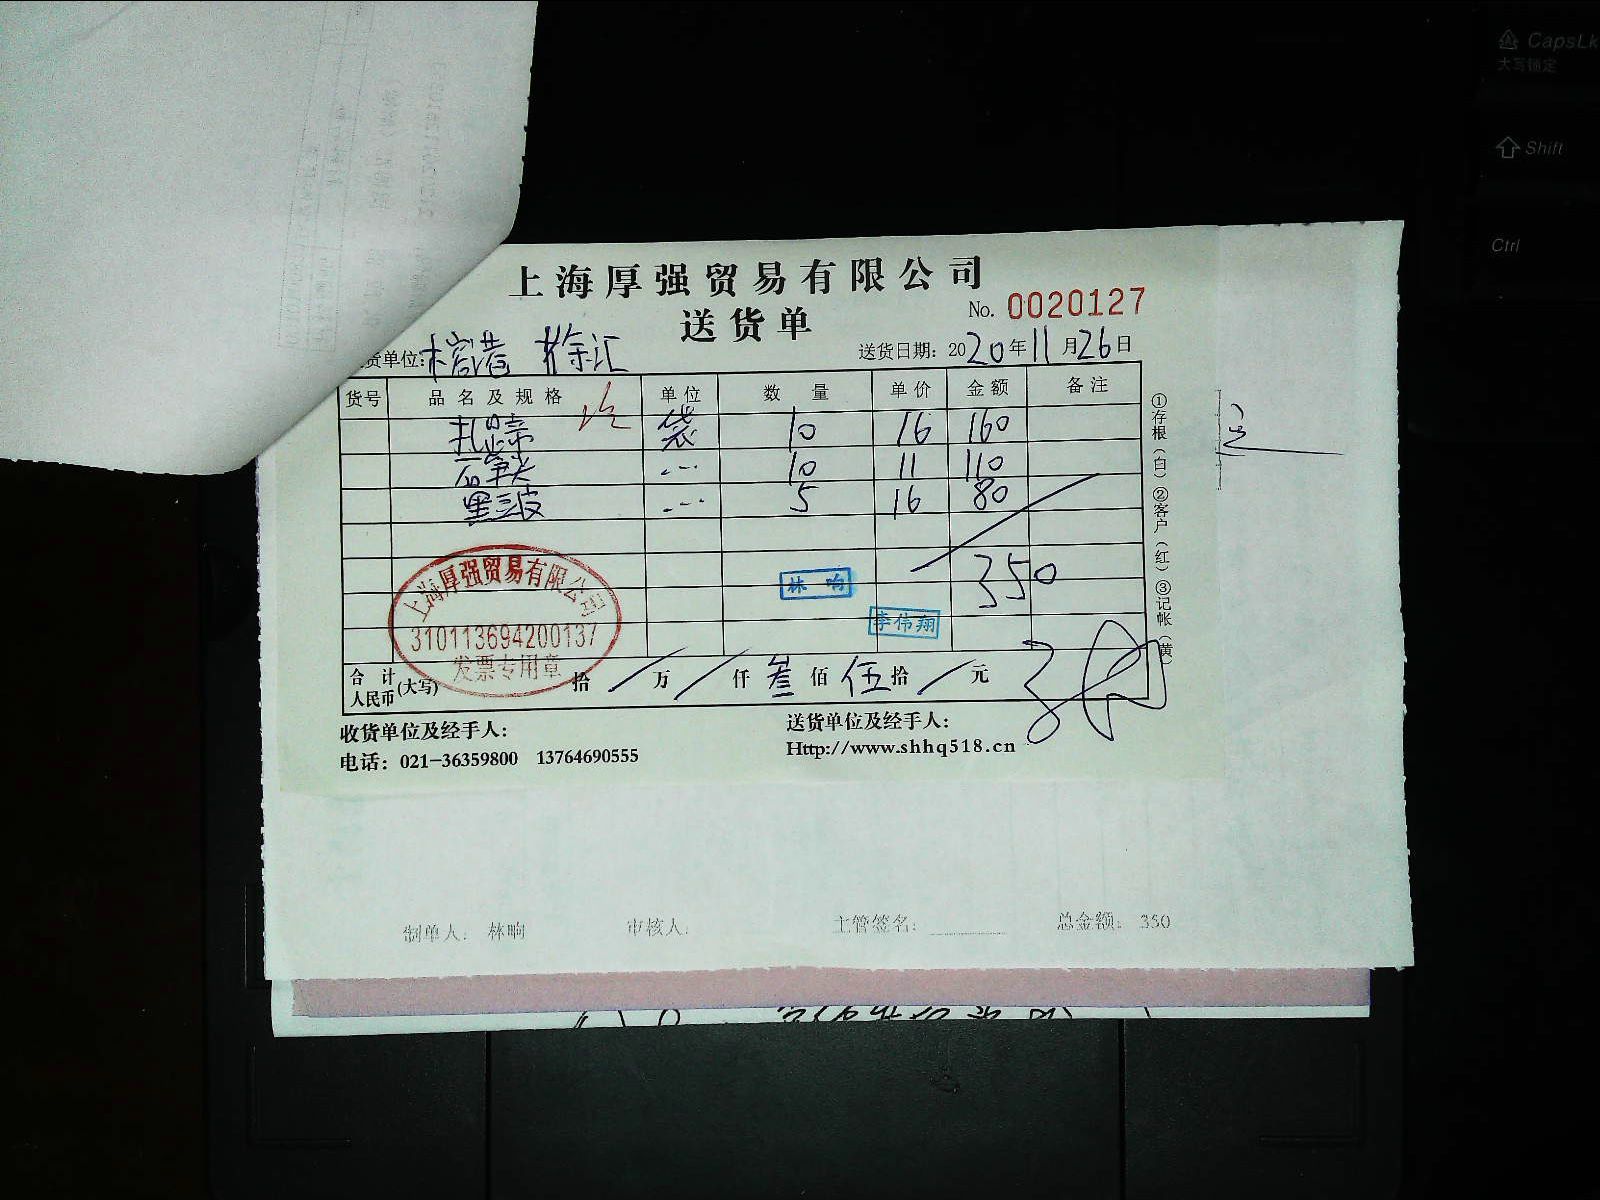 CapsLk
大写锁定
Shift
Ctrl
上海厚强贸易有限公司
No. 0020127
送货单
货单位: 榕港 徐汇
送货日期: 2020年11月26日
货号 品名及规格 单位 数量 单价 金额 备注
扎蹄 袋 10 16 160
10 11 110
5 16 80
350
林响
李伟翔
上海厚强贸易有限公司
310113694200137
发票专用章
合计人民币(大写) 拾 万 仟 叁 佰 伍 拾 元
①存根(白)②客户(红)③记帐(黄)
收货单位及经手人:
送货单位及经手人:
电话: 021-36359800 13764690555
Http://www.shhq518.cn
制单人: 林响 审核人: 主管签名: 总金额: 350